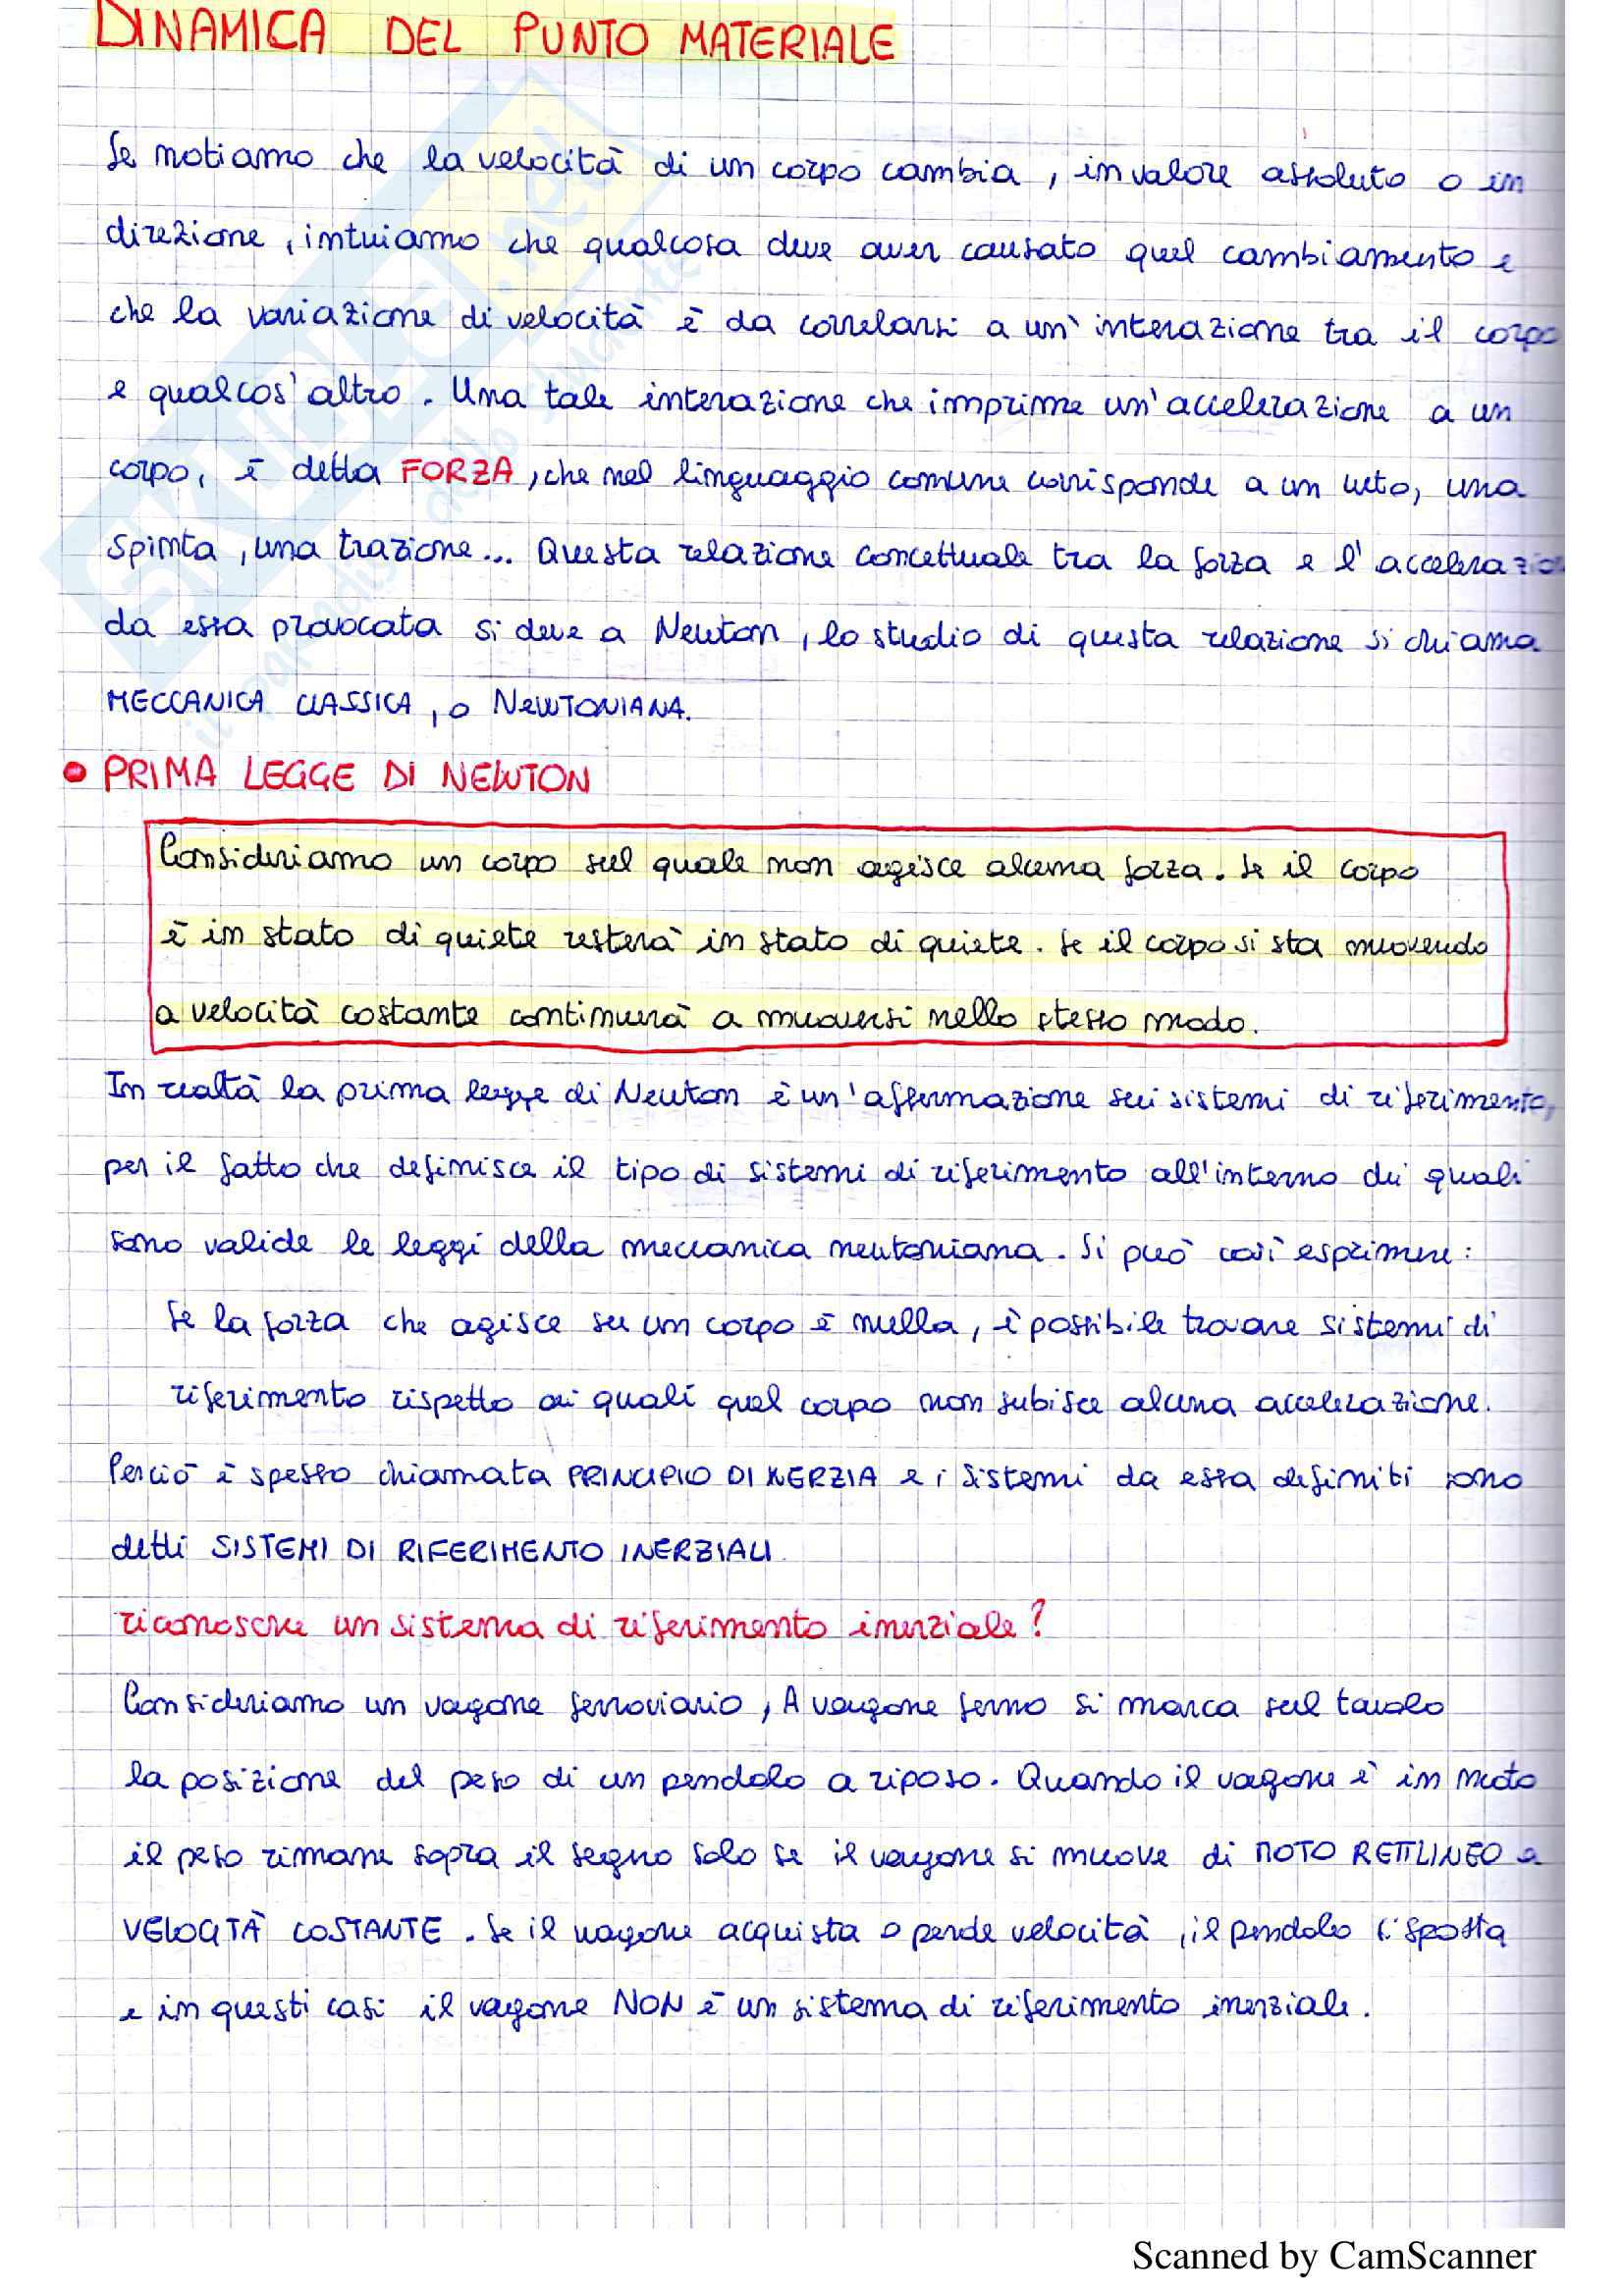 DINAMICA DEL PUNTO MATERIALE
Se notiamo che la velocità di un corpo cambia, in valore assoluto o in
direzione, intuiamo che qualcosa deve aver causato quel cambiamento e
che la variazione di velocità è da correlarsi a un'interazione tra il corpo
e qualcos'altro. Una tale interazione che imprime un'accelerazione a un
corpo, è detta FORZA, che nel linguaggio comune corrisponde a un urto, una
spinta, una trazione... Questa relazione concettuale tra la forza e l'accelerazio
da essa provocata si deve a Newton, lo studio di questa relazione si chiama
MECCANICA CLASSICA, o NEWTONIANA.
• PRIMA LEGGE DI NEWTON
Consideriamo un corpo sul quale non agisce alcuna forza. Se il corpo
è in stato di quiete resterà in stato di quiete. Se il corpo si sta muovendo
a velocità costante continuerà a muoversi nello stesso modo.
In realtà la prima legge di Newton è un'affermazione sui sistemi di riferimento,
per il fatto che definisce il tipo di sistemi di riferimento all'interno dei quali
sono valide le leggi della meccanica newtoniana. Si può così esprimere:
Se la forza che agisce su un corpo è nulla, è possibile trovare sistemi di
riferimento rispetto ai quali quel corpo non subisce alcuna accelerazione.
Perciò è spesso chiamata PRINCIPIO DI INERZIA e i sistemi da essa definiti sono
detti SISTEMI DI RIFERIMENTO INERZIALI.
riconoscere un sistema di riferimento inerziale?
Consideriamo un vagone ferroviario, A vagone fermo si marca sul tavolo
la posizione del peso di un pendolo a riposo. Quando il vagone è in moto
il peso rimane sopra il segno solo se il vagone si muove di MOTO RETTILINEO a
VELOCITÀ COSTANTE. Se il vagone acquista o perde velocità, il pendolo si sposta
e in questi casi il vagone NON è un sistema di riferimento inerziale.
SKUOLA.net
il paradiso dello studente
Scanned by CamScanner